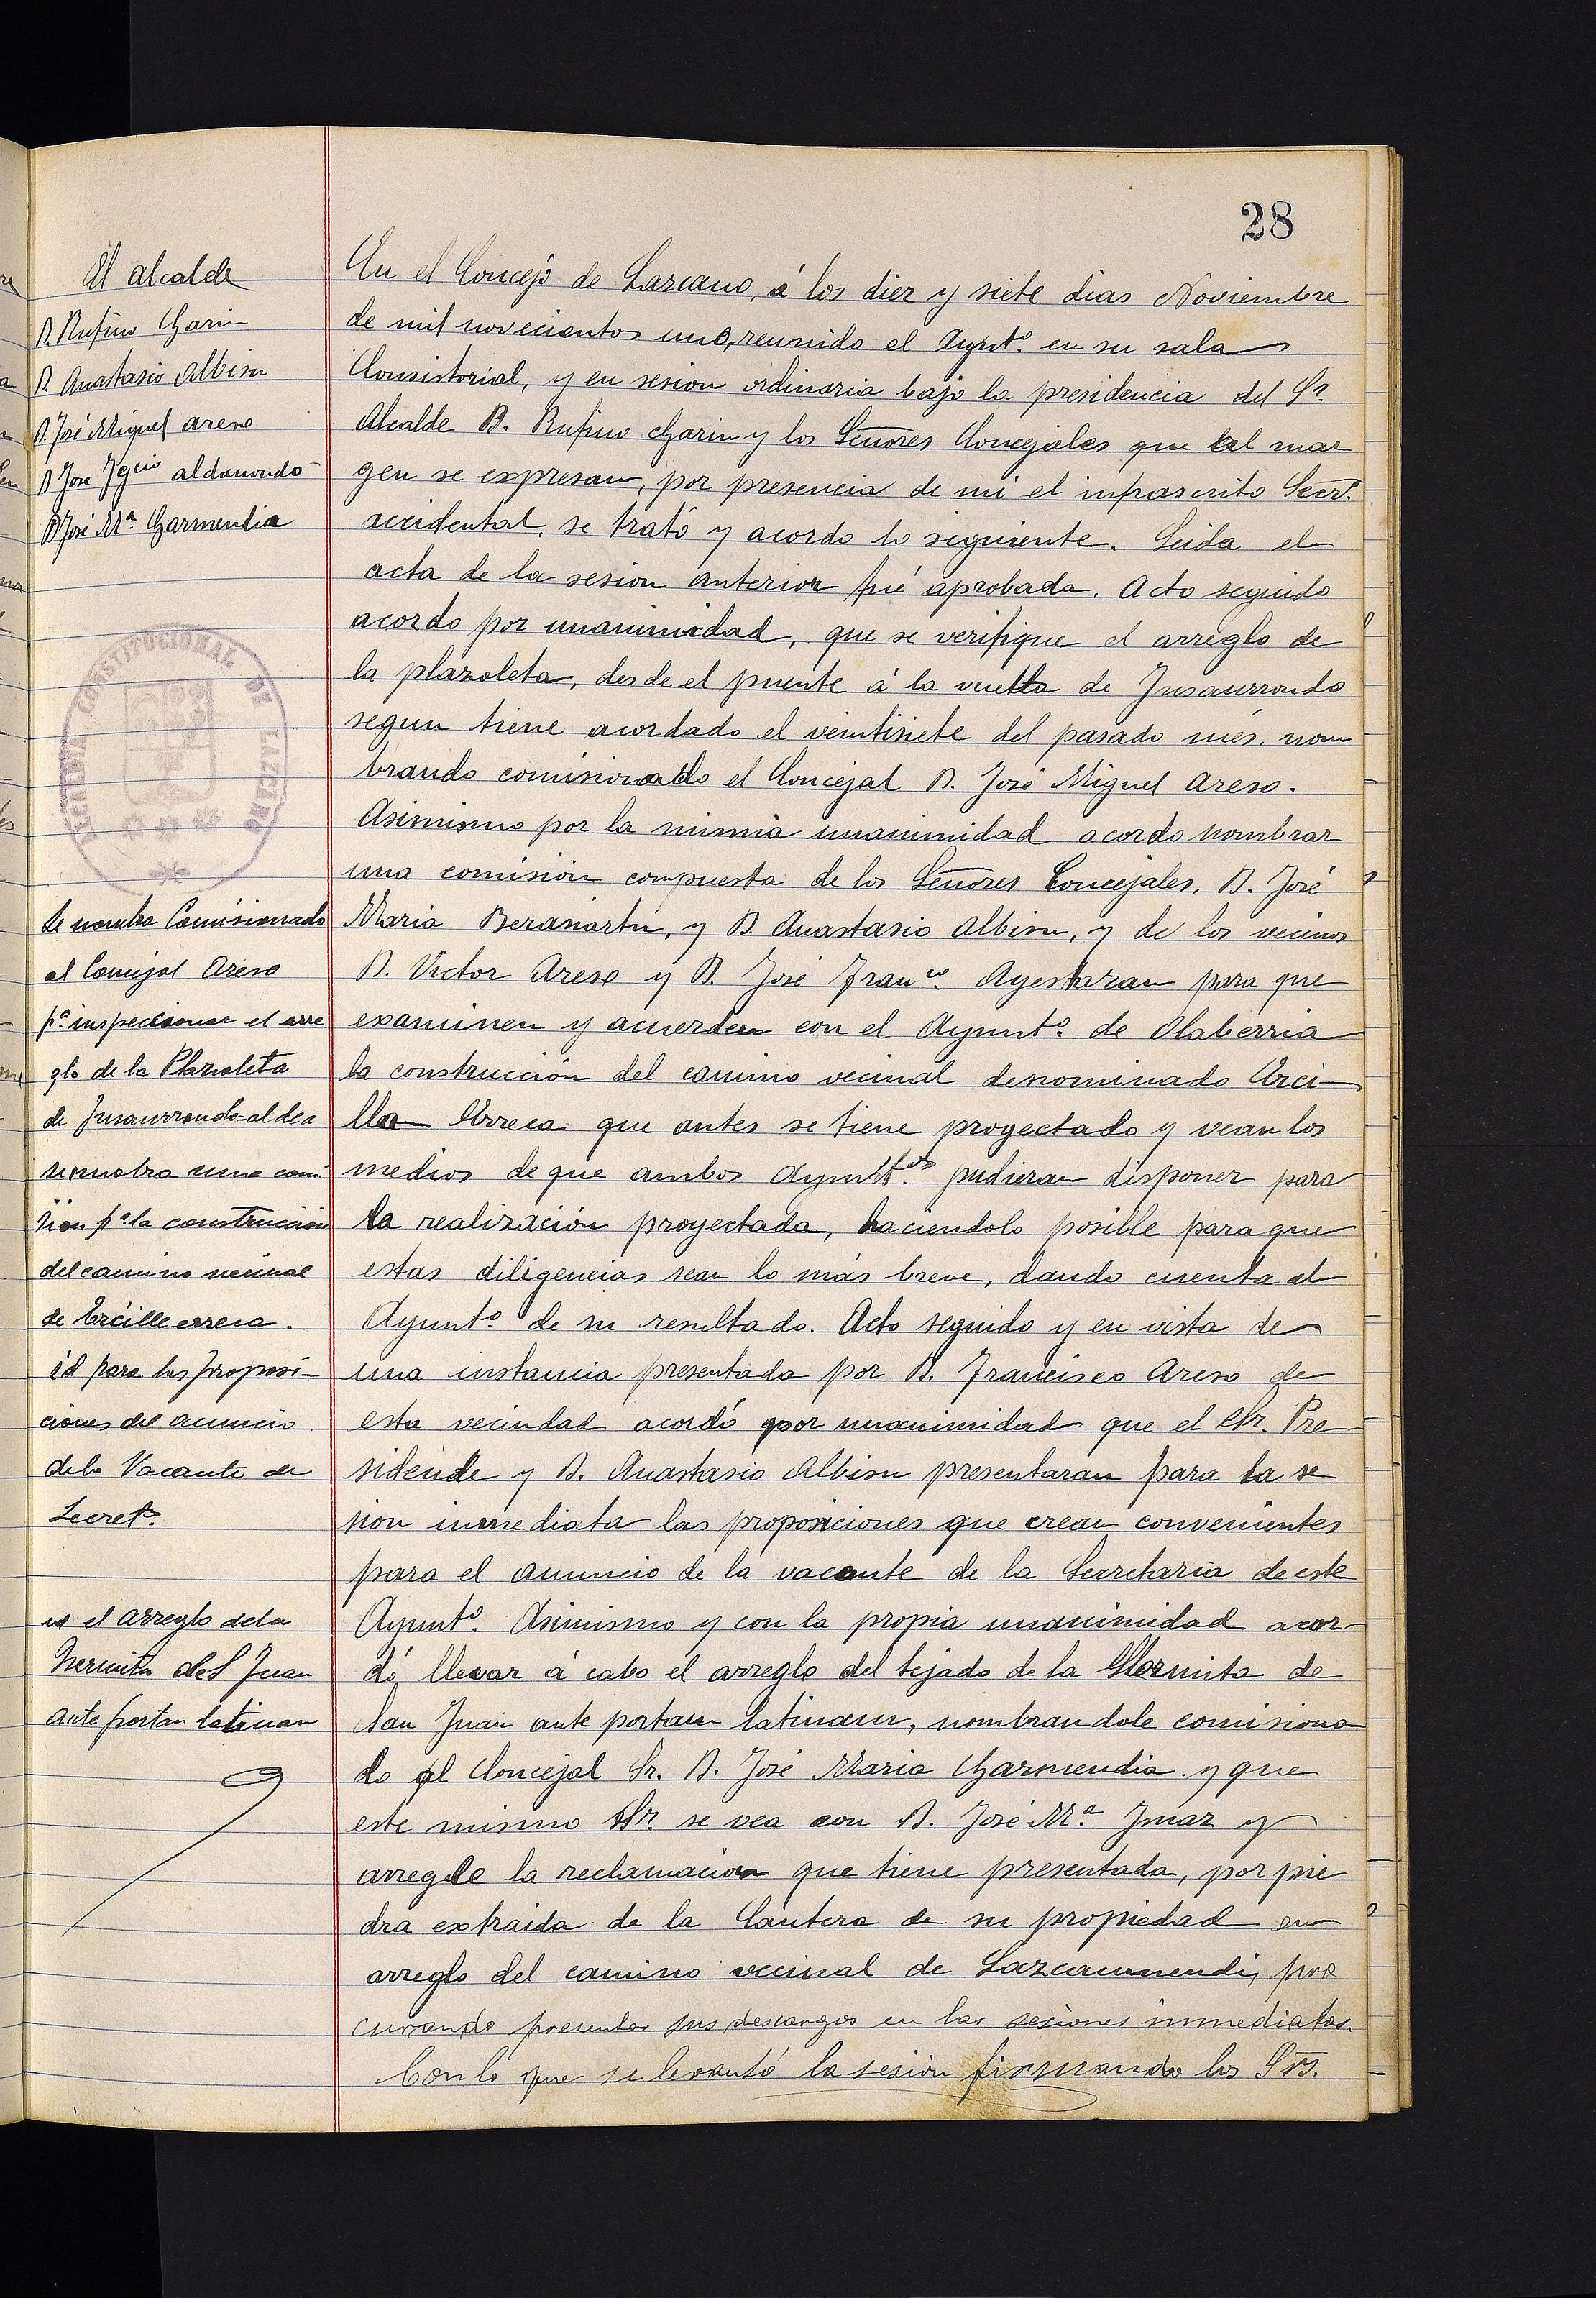 28
El alcalde
D. Rufino Garin
D. Anastasio Albisu
D. José Miguel Areso
D José Ygcio aldanondo
D José Mª. Garmendia
ALCALDIA CONSTITUCIONAL DE LAZCANO
Se nombra Comisionado
al Concejal Areso
pª. inspeccionar el arre
glo de la Plazoleta
de Insaurrondo-aldea
se nombra una comi
sion pª la construccion
del camino vecinal
de Ercilleerreca.
id para las proposi-
ciones del anuncio
de la Vacante de
Secretª.
id el arreglo de la
hermita de S Juan
ante portan latinan
En el Concejo de Lazcano, á los diez y siete dias Noviembre
de mil novecientos uno, reunido el Aynt.º en su sala
Consistorial, y en sesion ordinaria bajo la presidencia del Sr.
Alcalde D. Rufino Garin y los Señores Concejales que al mar
gen se expresan, por presencia de mi el infrascrito Secrº.
accidental, se trató y acordo lo siguiente. Leida el
acta de la sesion anterior fué aprobada. Acto seguido
acordo por unanimidad, que se verifique el arreglo de
la plazoleta, desde el puente á la vuelta de Insaurrondo
segun tiene acordado el veintisiete del pasado mes, nom
brando comisionado el Concejal D. José Miguel Areso.
Asimismo por la misma unanimidad acordo nombrar
una comisión compuesta de los Señores Concejales, D. José
Maria Berasartu, y D. Anastasio Albisu, y de los vecinos
D. Victor Areso y D. José Franco. Ayestaran para que
examinen y acuerden con el Ayuntº. de Olaberria
la construcción del camino vecinal denominado Erci-
lla Erreca que antes se tiene proyectado y vean los
medios de que ambos Aynttos. pudieran disponer para
la realización proyectada, haciendolo posible para que
estas diligencias sean lo más breve, dando cuenta al
Ayuntº. de su resultado. Acto seguido y en vista de
una instancia presentada por D. Francisco Areso de
esta vecindad acordó por unanimidad que el Sr. Pre
sidende y D. Anastasio Albisu presentaran para la se
sion inmediata las proposiciones que crean convenientes
para el anuncio de la vacante de la Secretaria de este
Ayuntº. Asimismo y con la propia unanimidad acor-
dó, llevar á cabo el arreglo del tejado de la Hermita de
San Juan ante portam latinam, nombrandole comisiona
do al Concejal Sr. D. José Maria Garmendia y que
este mismo Sr. se vea con D. José Mª. Imaz y
arregle la reclamacion que tiene presentada, por pie
dra extraida de la Cantera de su propiedad en
arreglo del camino vecinal de Lazcanomendi, pro
curando presentar sus descargos en las sesiones inmediatas.
Con lo que se levantó la sesión firmando los Srs.